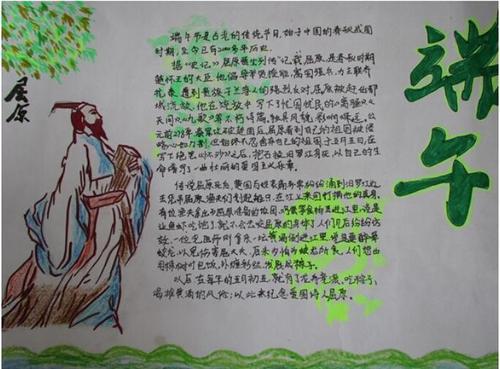 端午
屈原
端午节是古老的传统节日，始于中国的春秋战国
时期，至今已有2000多年历史。
据《史记》屈原贾生列传记载，屈原，是春秋时期
楚怀王的大臣。他倡导举贤授能，富国强兵，力主联齐
抗秦，遭到贵族子兰等人的强烈反对，屈原被赶出都
城，流放。他在流放中，写下了忧国忧民的《离骚》、《
天问》、《九歌》等不朽诗篇，独具风貌，影响
元前278年，秦军攻破楚国，屈原看到自己的祖国被侵
略，心如刀割，但始终不忍舍弃自己的祖国，于五月五日，在
写下绝笔《怀沙》之后，抱石投汨罗江身死，以自己的生
命谱写了一曲壮丽的爱国主义乐章。
传说屈原死后，楚国百姓哀痛异常，纷纷涌到汨罗江边
去凭吊屈原。渔夫们划起船只，在江上来回打捞他的真身。
有位渔夫拿出为屈原准备的饭团、鸡蛋等食物丢进江里，说是
让鱼虾吃饱了，就不会去咬屈原的身体了。人们见后纷纷仿
效。一位老医师则拿来一坛黄酒倒进江里，说是要醉晕
蛟龙，以免伤害屈大夫。后来为怕为蛟龙所食，人们想出
用楝树叶包饭，外缠彩丝，发展成粽子。
以后，在每年的五月初五，就有了龙舟竞渡、吃粽子、
喝雄黄酒的风俗；以此来纪念爱国诗人屈原。